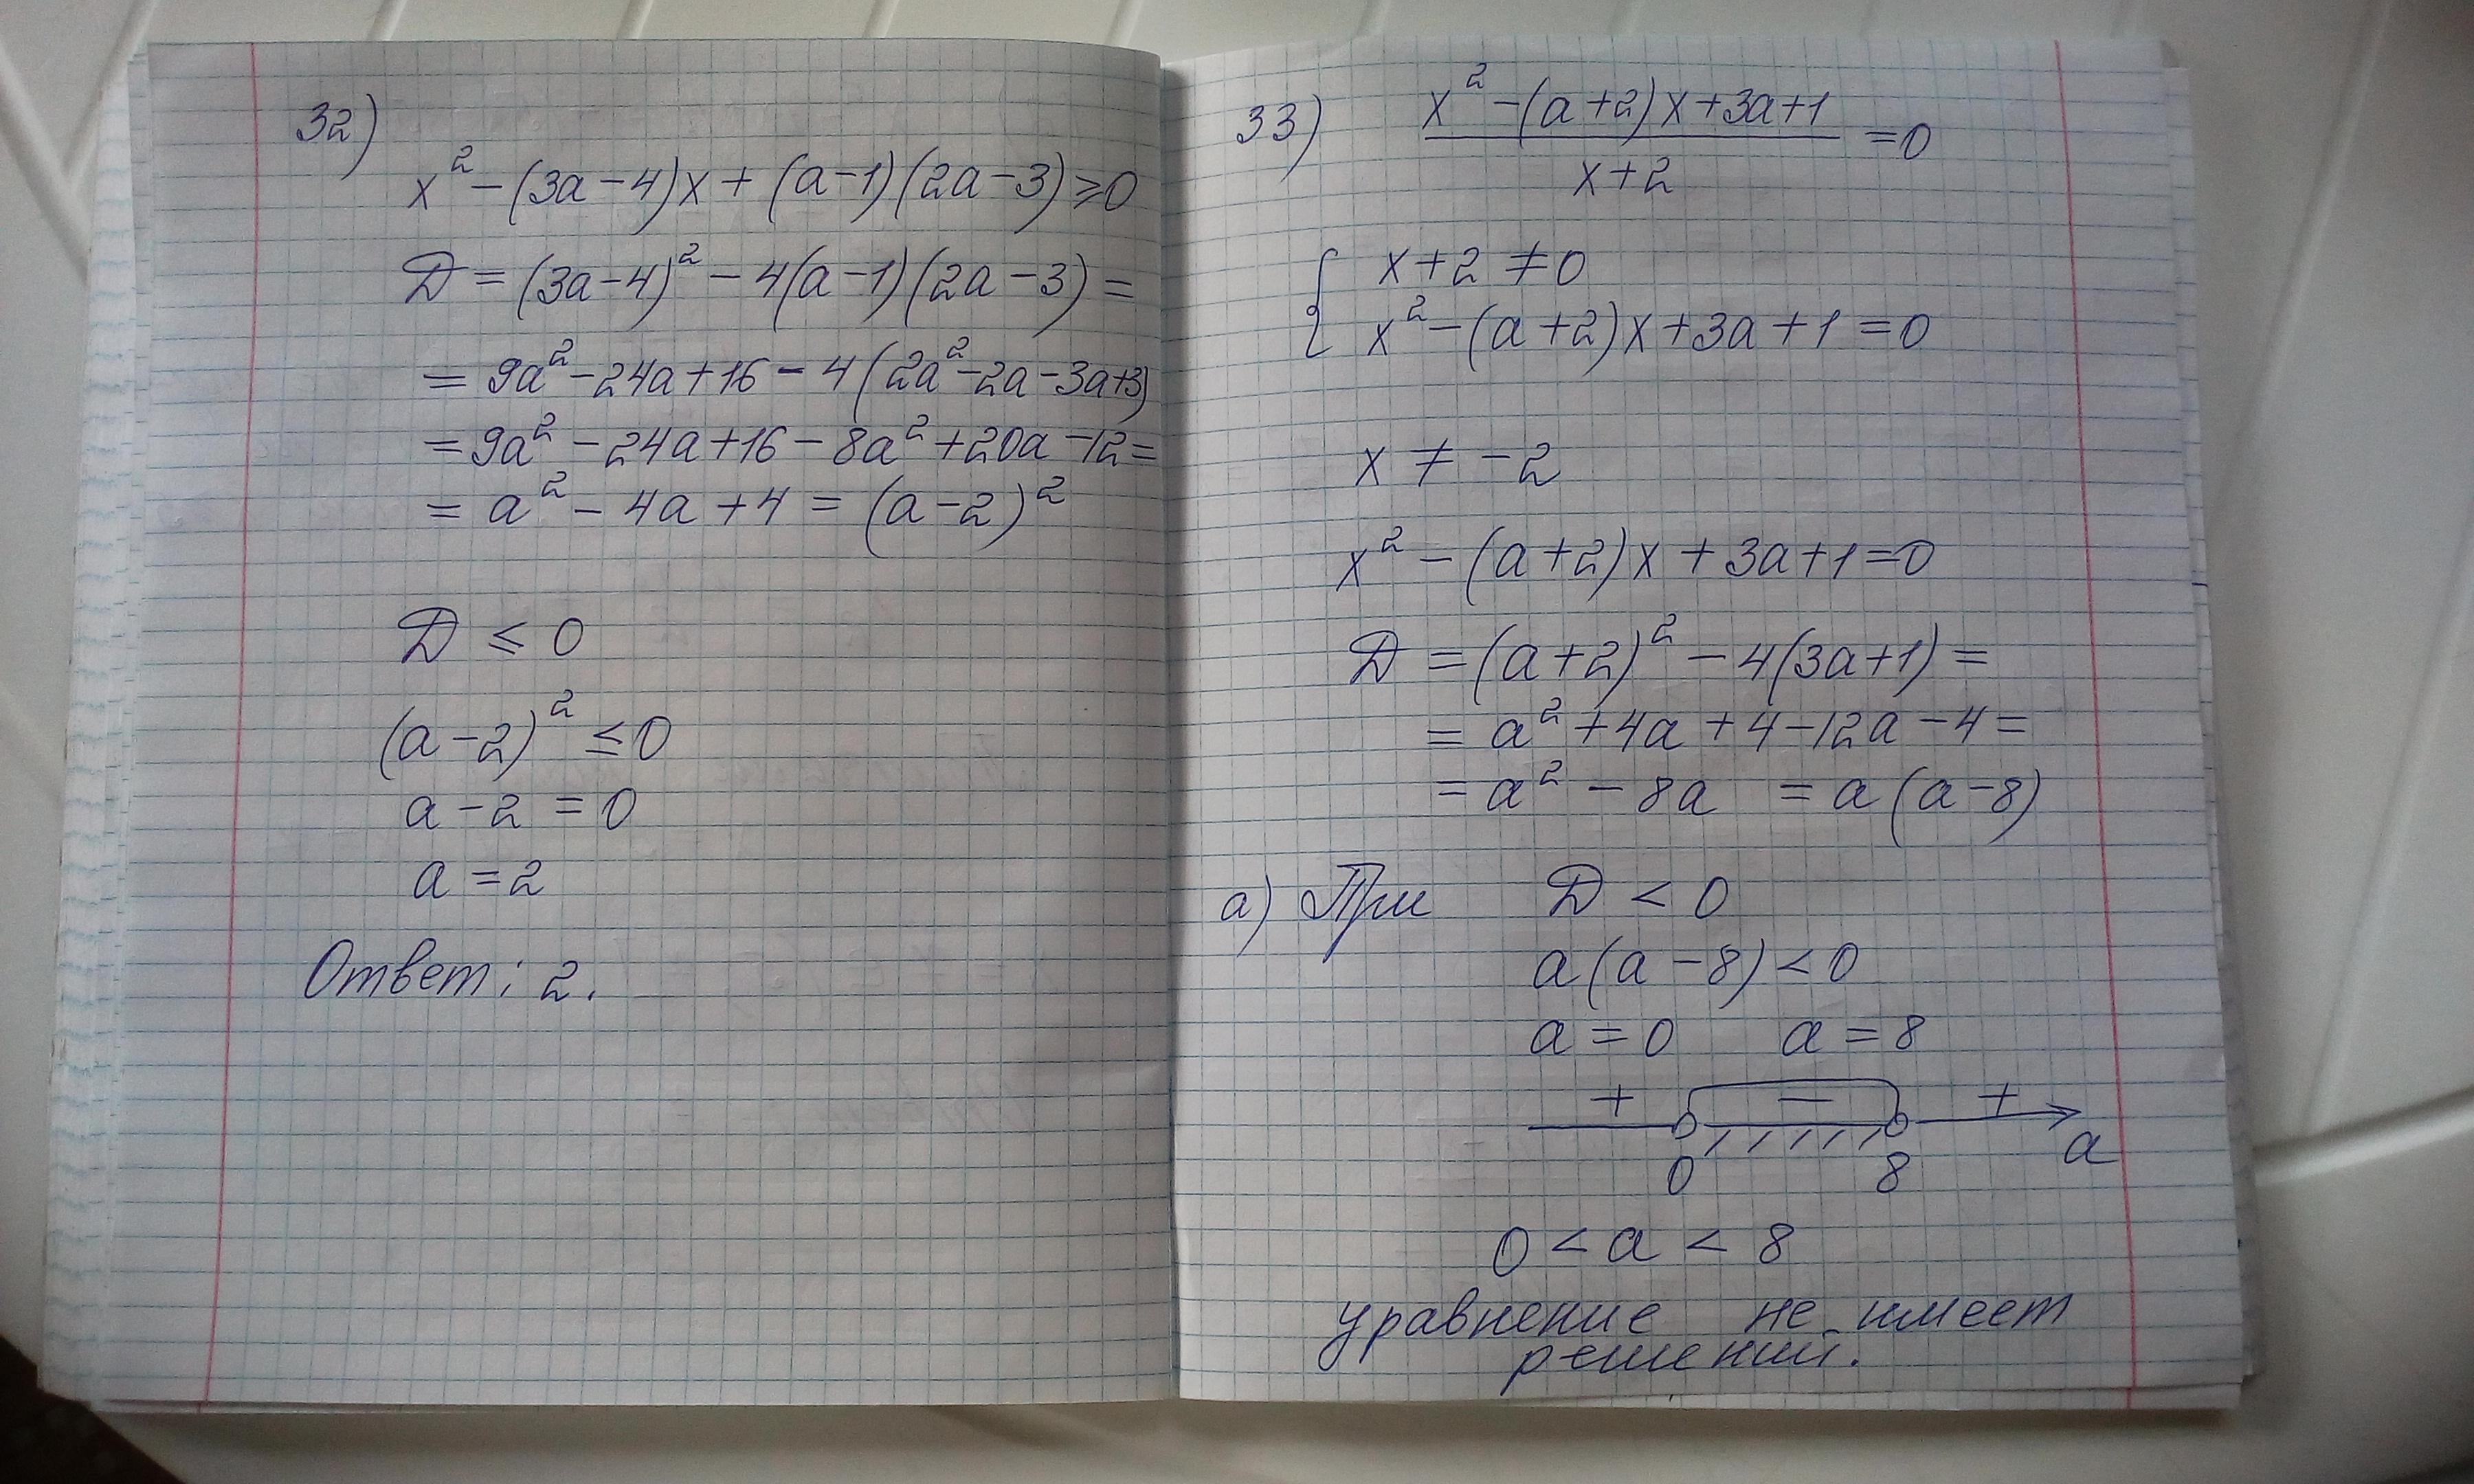 32)
x² - (3a - 4)x + (a - 1)(2a - 3) ⩾ 0
D = (3a - 4)² - 4(a - 1)(2a - 3) =
= 9a² - 24a + 16 - 4(2a² - 2a - 3a + 3)
= 9a² - 24a + 16 - 8a² + 20a - 12 =
= a² - 4a + 4 = (a - 2)²
D ⩽ 0
(a - 2)² ≤ 0
a - 2 = 0
a = 2
Ответ: 2.
33) (x² - (a + 2)x + 3a + 1) / (x + 2) = 0
{ x + 2 ≠ 0
x² - (a + 2)x + 3a + 1 = 0
x ≠ -2
x² - (a + 2)x + 3a + 1 = 0
D = (a + 2)² - 4(3a + 1) =
= a² + 4a + 4 - 12a - 4 =
= a² - 8a = a(a - 8)
а) При D < 0
a(a - 8) < 0
a = 0 a = 8
+ − +
0 8 a
0 < a < 8
уравнение не имеет
решений.